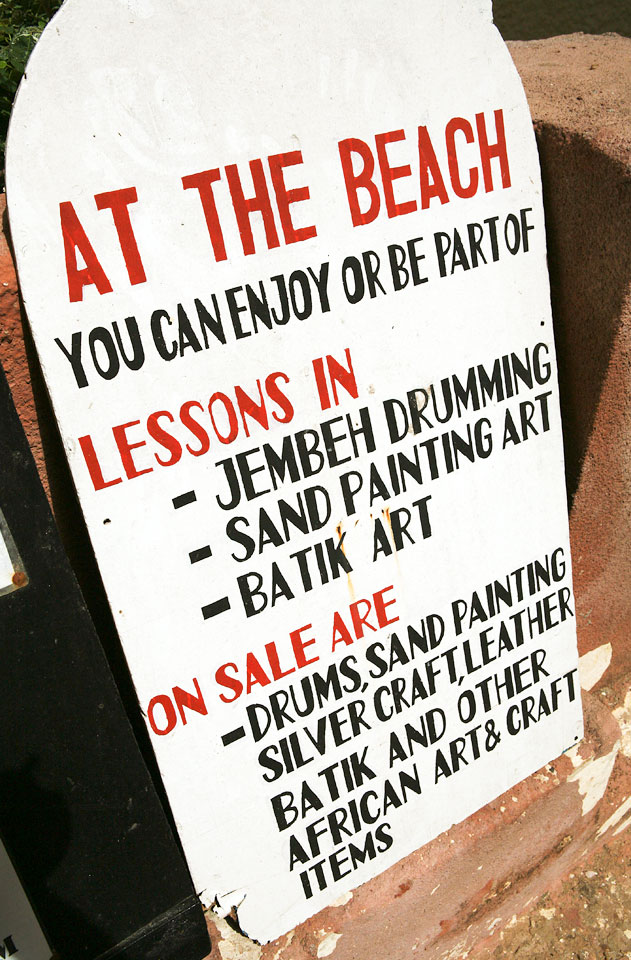 AT THE BEACH
YOU CAN ENJOY OR BE PART OF
LESSONS IN
- JEMBEH DRUMMING
- SAND PAINTING ART
- BATIK ART
ON SALE ARE
- DRUMS, SAND PAINTING
SILVER CRAFT, LEATHER
BATIK AND OTHER
AFRICAN ART & CRAFT
ITEMS
M